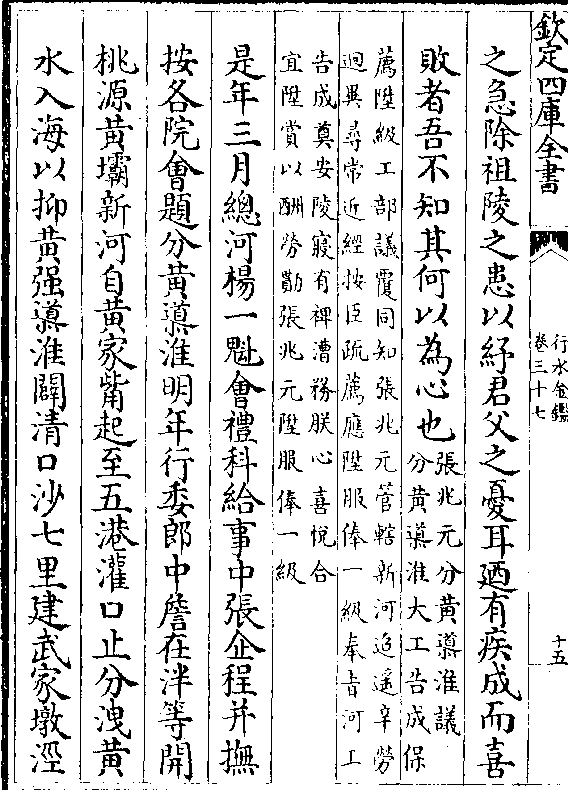 欽定四庫全書
行水金鑑
卷三十七
十五
之急除祖陵之患以紓君父之憂耳廼有疾成而喜
敗者吾不知其何以為心也
張兆元分黃導淮議
分黃導淮大工告成保
薦陞級工部議覆同知張兆元管轄新河迢遥辛勞
迥異尋常近經按臣疏薦應陞服俸一級奉㫖河工
告成奠安陵寢有裨漕務朕心喜悅合
宜陞賞以酬勞勩張兆元陞服俸一級
是年三月總河楊一魁會禮科給事中張企程并撫
按各院會題分黃導淮明年行委郎中詹在泮等開
桃源黃壩新河自黃家嘴起至五港灌口止分洩黃
水入海以抑黃强導淮闢清口沙七里建武家墩涇